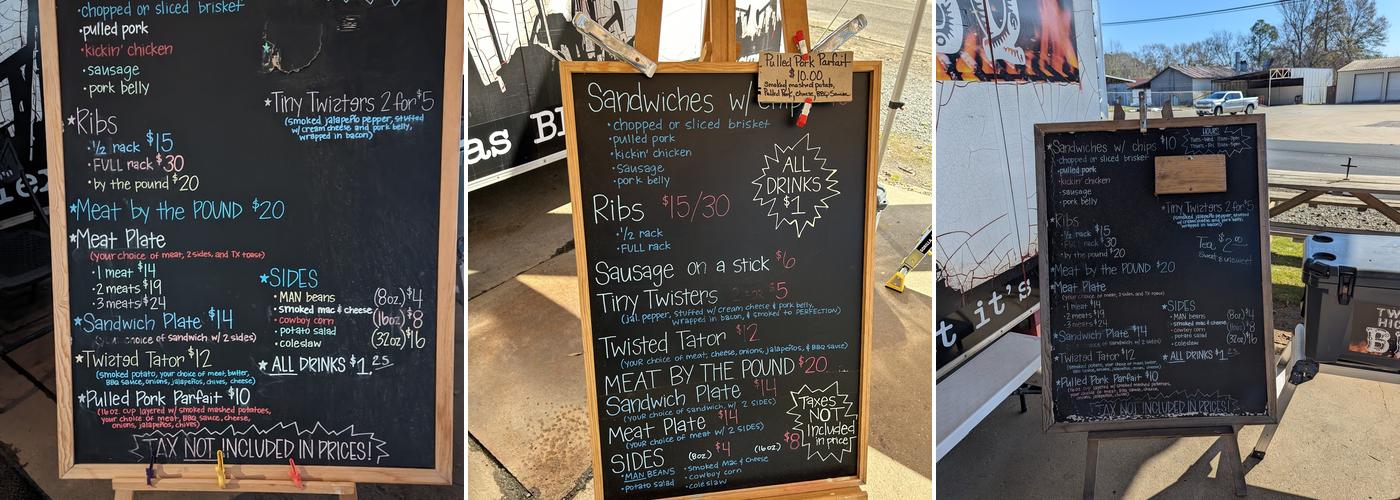 • chopped or sliced brisket
• pulled pork
• kickin' chicken
• sausage
• pork belly
★Tiny Twizters 2 for $5
(smoked jalapeño pepper, stuffed
w/ cream cheese and pork belly,
wrapped in bacon)
★Ribs
• ½ rack $15
• FULL rack $30
• by the pound $20
★Meat by the POUND $20
★Meat Plate
(your choice of meat, 2 sides, and TX toast)
• 1 meat $14
• 2 meats $19
• 3 meats $24
★Sandwich Plate $14
choice of sandwich w/ 2 sides)
★Twizted Tator $12
(smoked potato, your choice of meat, butter,
BBQ sauce, onions, jalapeños, chives, cheese)
★Pulled Pork Parfait $10
(16oz. cup layered w/ smoked mashed potatoes,
your choice of meat, BBQ sauce, cheese,
onions, jalapeños, chives)
★SIDES
• MAN beans (8oz.) $4
• smoked mac & cheese
• cowboy corn (16oz) $8
• potato salad
• coleslaw (32oz) $16
★ALL DRINKS $1.25
TAX NOT INCLUDED IN PRICES!
as B
Pulled Pork Parfait
$10.00
Smoked mashed potato,
Pulled Pork, cheese, BBQ Sauce
Sandwiches w/
• chopped or sliced brisket
• pulled pork
• kickin' chicken
• Sausage
• pork belly
ALL
DRINKS
$1
Ribs $15/30
• ½ rack
• FULL rack
Sausage on a stick $6
Tiny Twisters $5
(jal. pepper, stuffed w/ cream cheese & pork belly,
wrapped in bacon, & smoked to PERFECTION)
Twisted Tator $12
(your choice of meat, cheese, onions, jalapeños, & BBQ sauce)
MEAT BY THE POUND $20
Sandwich Plate $14
(your choice of sandwich w/ 2 SIDES)
Meat Plate $14
(your choice of meat w/ 2 SIDES)
Taxes
NOT
Included
in price
SIDES (8oz) $4 (16oz) $8
• MAN BEANS • Smoked Mac & Cheese
• potato salad • cowboy corn
• coleslaw
t it's
★Sandwiches w/ chips $10
HOURS
• chopped or sliced brisket
• pulled pork
• kickin' chicken
• sausage
• pork belly
★Tiny Twizters 2 for $5
(smoked jalapeño pepper, stuffed
w/ cream cheese and pork belly,
wrapped in bacon)
★Ribs
• ½ rack $15
• FULL rack $30
• by the pound $20
Tea $2.00
Sweet & unsweet
★Meat by the POUND $20
★Meat Plate
(your choice of meat, 2 sides, and TX toast)
• 1 meat $14
• 2 meats $19
• 3 meats $24
★SIDES
• MAN beans (8oz) $4
• smoked mac & cheese
• cowboy corn (16oz) $8
• potato salad
• coleslaw (32oz) $16
★Sandwich Plate $14
choice of sandwich w/ 2 sides)
★Twizted Tator $12
★ALL DRINKS $1.25
★Pulled Pork Parfait $10
TAX NOT INCLUDED IN PRICES!